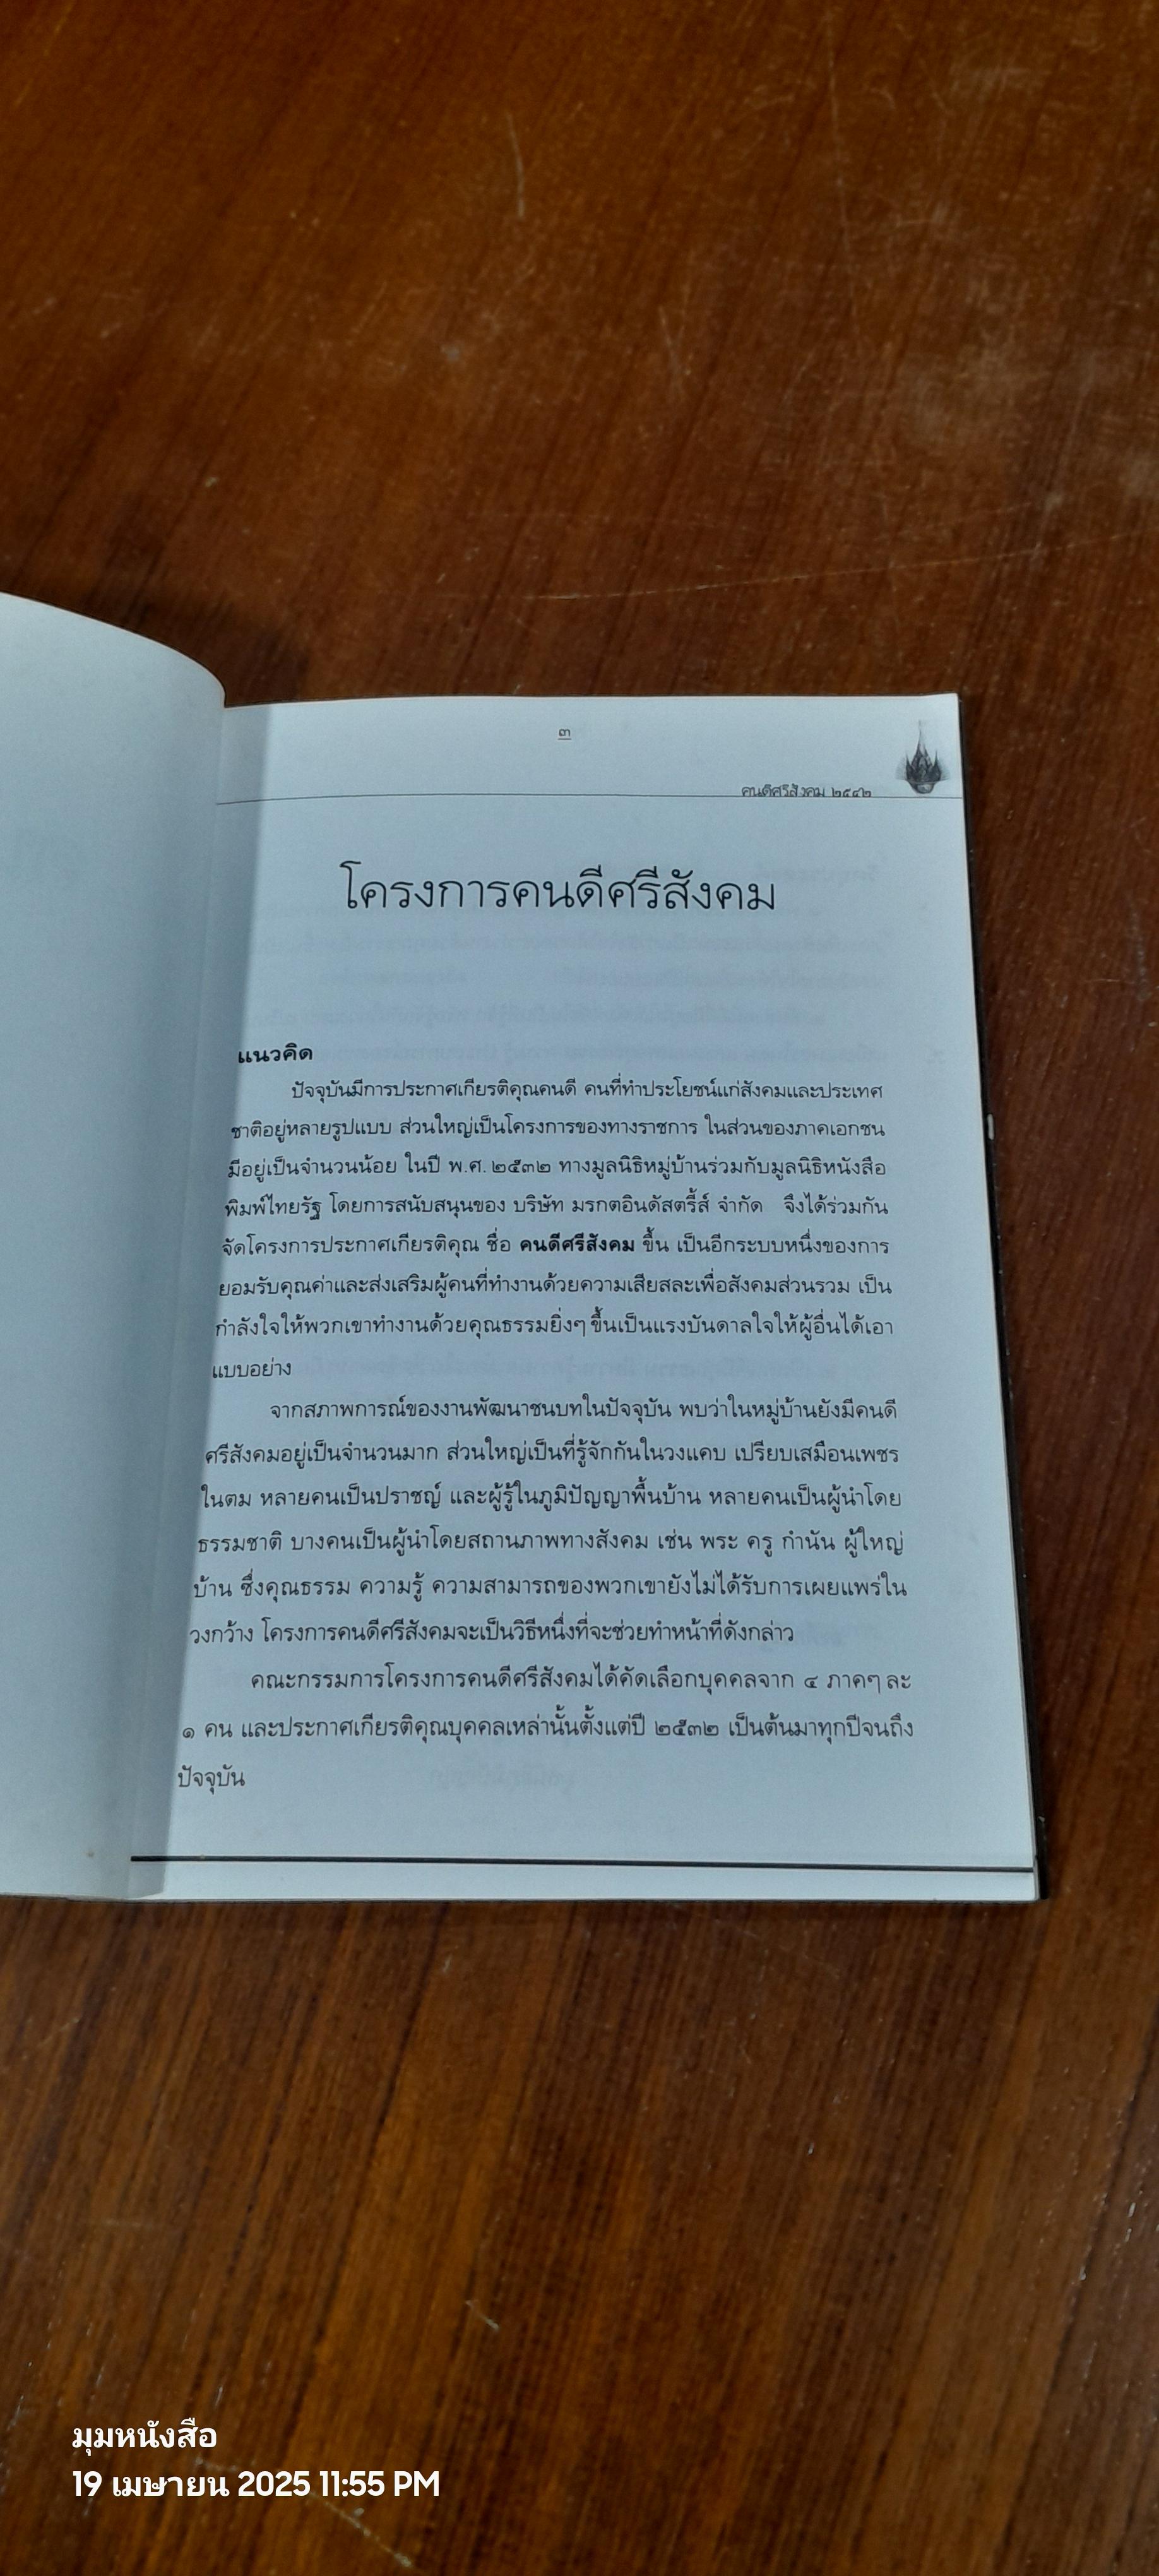 ๓
คนดีศรีสังคม ๒๕๔๒
โครงการคนดีศรีสังคม
แนวคิด
ปัจจุบันมีการประกาศเกียรติคุณคนดี คนที่ทำประโยชน์แก่สังคมและประเทศ
ชาติอยู่หลายรูปแบบ ส่วนใหญ่เป็นโครงการของทางราชการ ในส่วนของภาคเอกชน
มีอยู่เป็นจำนวนน้อย ในปี พ.ศ. ๒๕๓๒ ทางมูลนิธิหมู่บ้านร่วมกับมูลนิธิหนังสือ
พิมพ์ไทยรัฐ โดยการสนับสนุนของ บริษัท มรกตอินดัสตรี้ส์ จำกัด จึงได้ร่วมกัน
จัดโครงการประกาศเกียรติคุณ ชื่อ คนดีศรีสังคม ขึ้น เป็นอีกระบบหนึ่งของการ
ยอมรับคุณค่าและส่งเสริมผู้คนที่ทำงานด้วยความเสียสละเพื่อสังคมส่วนรวม เป็น
กำลังใจให้พวกเขาทำงานด้วยคุณธรรมยิ่งๆ ขึ้นเป็นแรงบันดาลใจให้ผู้อื่นได้เอา
แบบอย่าง
จากสภาพการณ์ของงานพัฒนาชนบทในปัจจุบัน พบว่าในหมู่บ้านยังมีคนดี
ศรีสังคมอยู่เป็นจำนวนมาก ส่วนใหญ่เป็นที่รู้จักกันในวงแคบ เปรียบเสมือนเพชร
ในตม หลายคนเป็นปราชญ์ และผู้รู้ในภูมิปัญญาพื้นบ้าน หลายคนเป็นผู้นำโดย
ธรรมชาติ บางคนเป็นผู้นำโดยสถานภาพทางสังคม เช่น พระ ครู กำนัน ผู้ใหญ่
บ้าน ซึ่งคุณธรรม ความรู้ ความสามารถของพวกเขายังไม่ได้รับการเผยแพร่ใน
วงกว้าง โครงการคนดีศรีสังคมจะเป็นวิธีหนึ่งที่จะช่วยทำหน้าที่ดังกล่าว
คณะกรรมการโครงการคนดีศรีสังคมได้คัดเลือกบุคคลจาก ๔ ภาคๆ ละ
๑ คน และประกาศเกียรติคุณบุคคลเหล่านั้นตั้งแต่ปี ๒๕๓๒ เป็นต้นมาทุกปีจนถึง
ปัจจุบัน
มุมหนังสือ
19 เมษายน 2025 11:55 PM